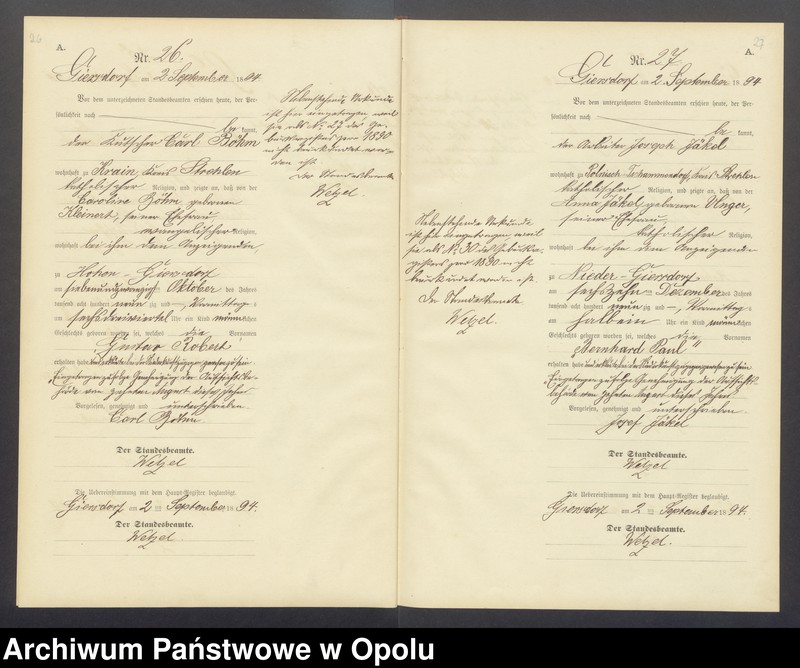 26
A.
Nr. 26.
Giersdorf am 2 September 1894
Vor dem unterzeichneten Standesbeamten erschien heute, der Per-
sönlichkeit nach
be kannt,
der Kutscher Carl Böhm
wohnhaft zu Krain, Kreis Strehlen
katholischer Religion, und zeigte an, daß von der
Caroline Böhm geborenen
Kleinert, seiner Ehefrau
evangelischer Religion,
wohnhaft bei ihm dem Anzeigenden,
zu Hohen-Giersdorf
am siebenundzwanzigsten Oktober des Jahres
tausend acht hundert neun zig und —, Vormittags
um sechsdreiviertel Uhr ein Kind männlichen
Geschlechts geboren worden sei, welches die Vornamen
"Gustav Robert"
erhalten habe
Eingetragen zufolge Genehmigung der Aufsichtsbe-
hörde vom zehnten August dieses Jahres
Vorgelesen, genehmigt und unterschrieben
Carl Böhm.
Der Standesbeamte.
Wetzel
Die Uebereinstimmung mit dem Haupt-Register beglaubigt.
Giersdorf am 2 ten September 1894.
Der Standesbeamte.
Wetzel.
Nebenstehende Urkunde
ist hier eingetragen weil
sie als No. 29 des Ge-
burtsregisters pro 1890
nicht beurkundet wor-
den ist.
Der Standesbeamte
Wetzel.
27
A.
Nr. 27
Giersdorf am 2. September 1894
Vor dem unterzeichneten Standesbeamten erschien heute, der Per-
sönlichkeit nach
be kannt,
der Arbeiter Joseph Jäkel
wohnhaft zu Polnisch Tschammendorf, Kreis Strehlen
katholischer Religion, und zeigte an, daß von der
Anna Jäkel, geborenen Unger,
seiner Ehefrau,
katholischer Religion,
wohnhaft bei ihm dem Anzeigenden
zu Nieder-Giersdorf
am sechszehnten Dezember des Jahres
tausend acht hundert neun zig und —, Vormittags
um halb ein Uhr ein Kind männlichen
Geschlechts geboren worden sei, welches die Vornamen
"Bernhard Paul"
erhalten habe
Eingetragen zufolge Genehmigung der Aufsichts-
behörde vom zehnten August dieses Jahres
Vorgelesen, genehmigt und unterschrieben.
Josef Jäkel
Der Standesbeamte.
Wetzel
Die Uebereinstimmung mit dem Haupt-Register beglaubigt.
Giersdorf am 2 ten September 1894.
Der Standesbeamte.
Wetzel.
Nebenstehende Urkunde
ist hier eingetragen weil
sie als No. 30 des Geburtsre-
gisters pro 1890 nicht
beurkundet worden ist.
Der Standesbeamte
Wetzel.
Archiwum Państwowe w Opolu